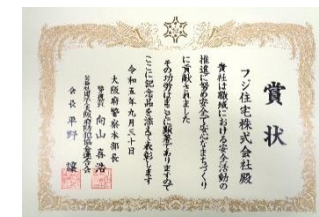 賞状
フジ住宅株式会社殿
貴社は職域における安全活動の
推進に努め安全で安心なまちづくり
に貢献されました
その功労はまことに顕著でありますので
ここに記念品を添えて表彰します
令和五年九月三十日
大阪府警察本部長
警視監 向山喜浩
公益社団法人大阪府防犯協会連合会
会長 平野 譲